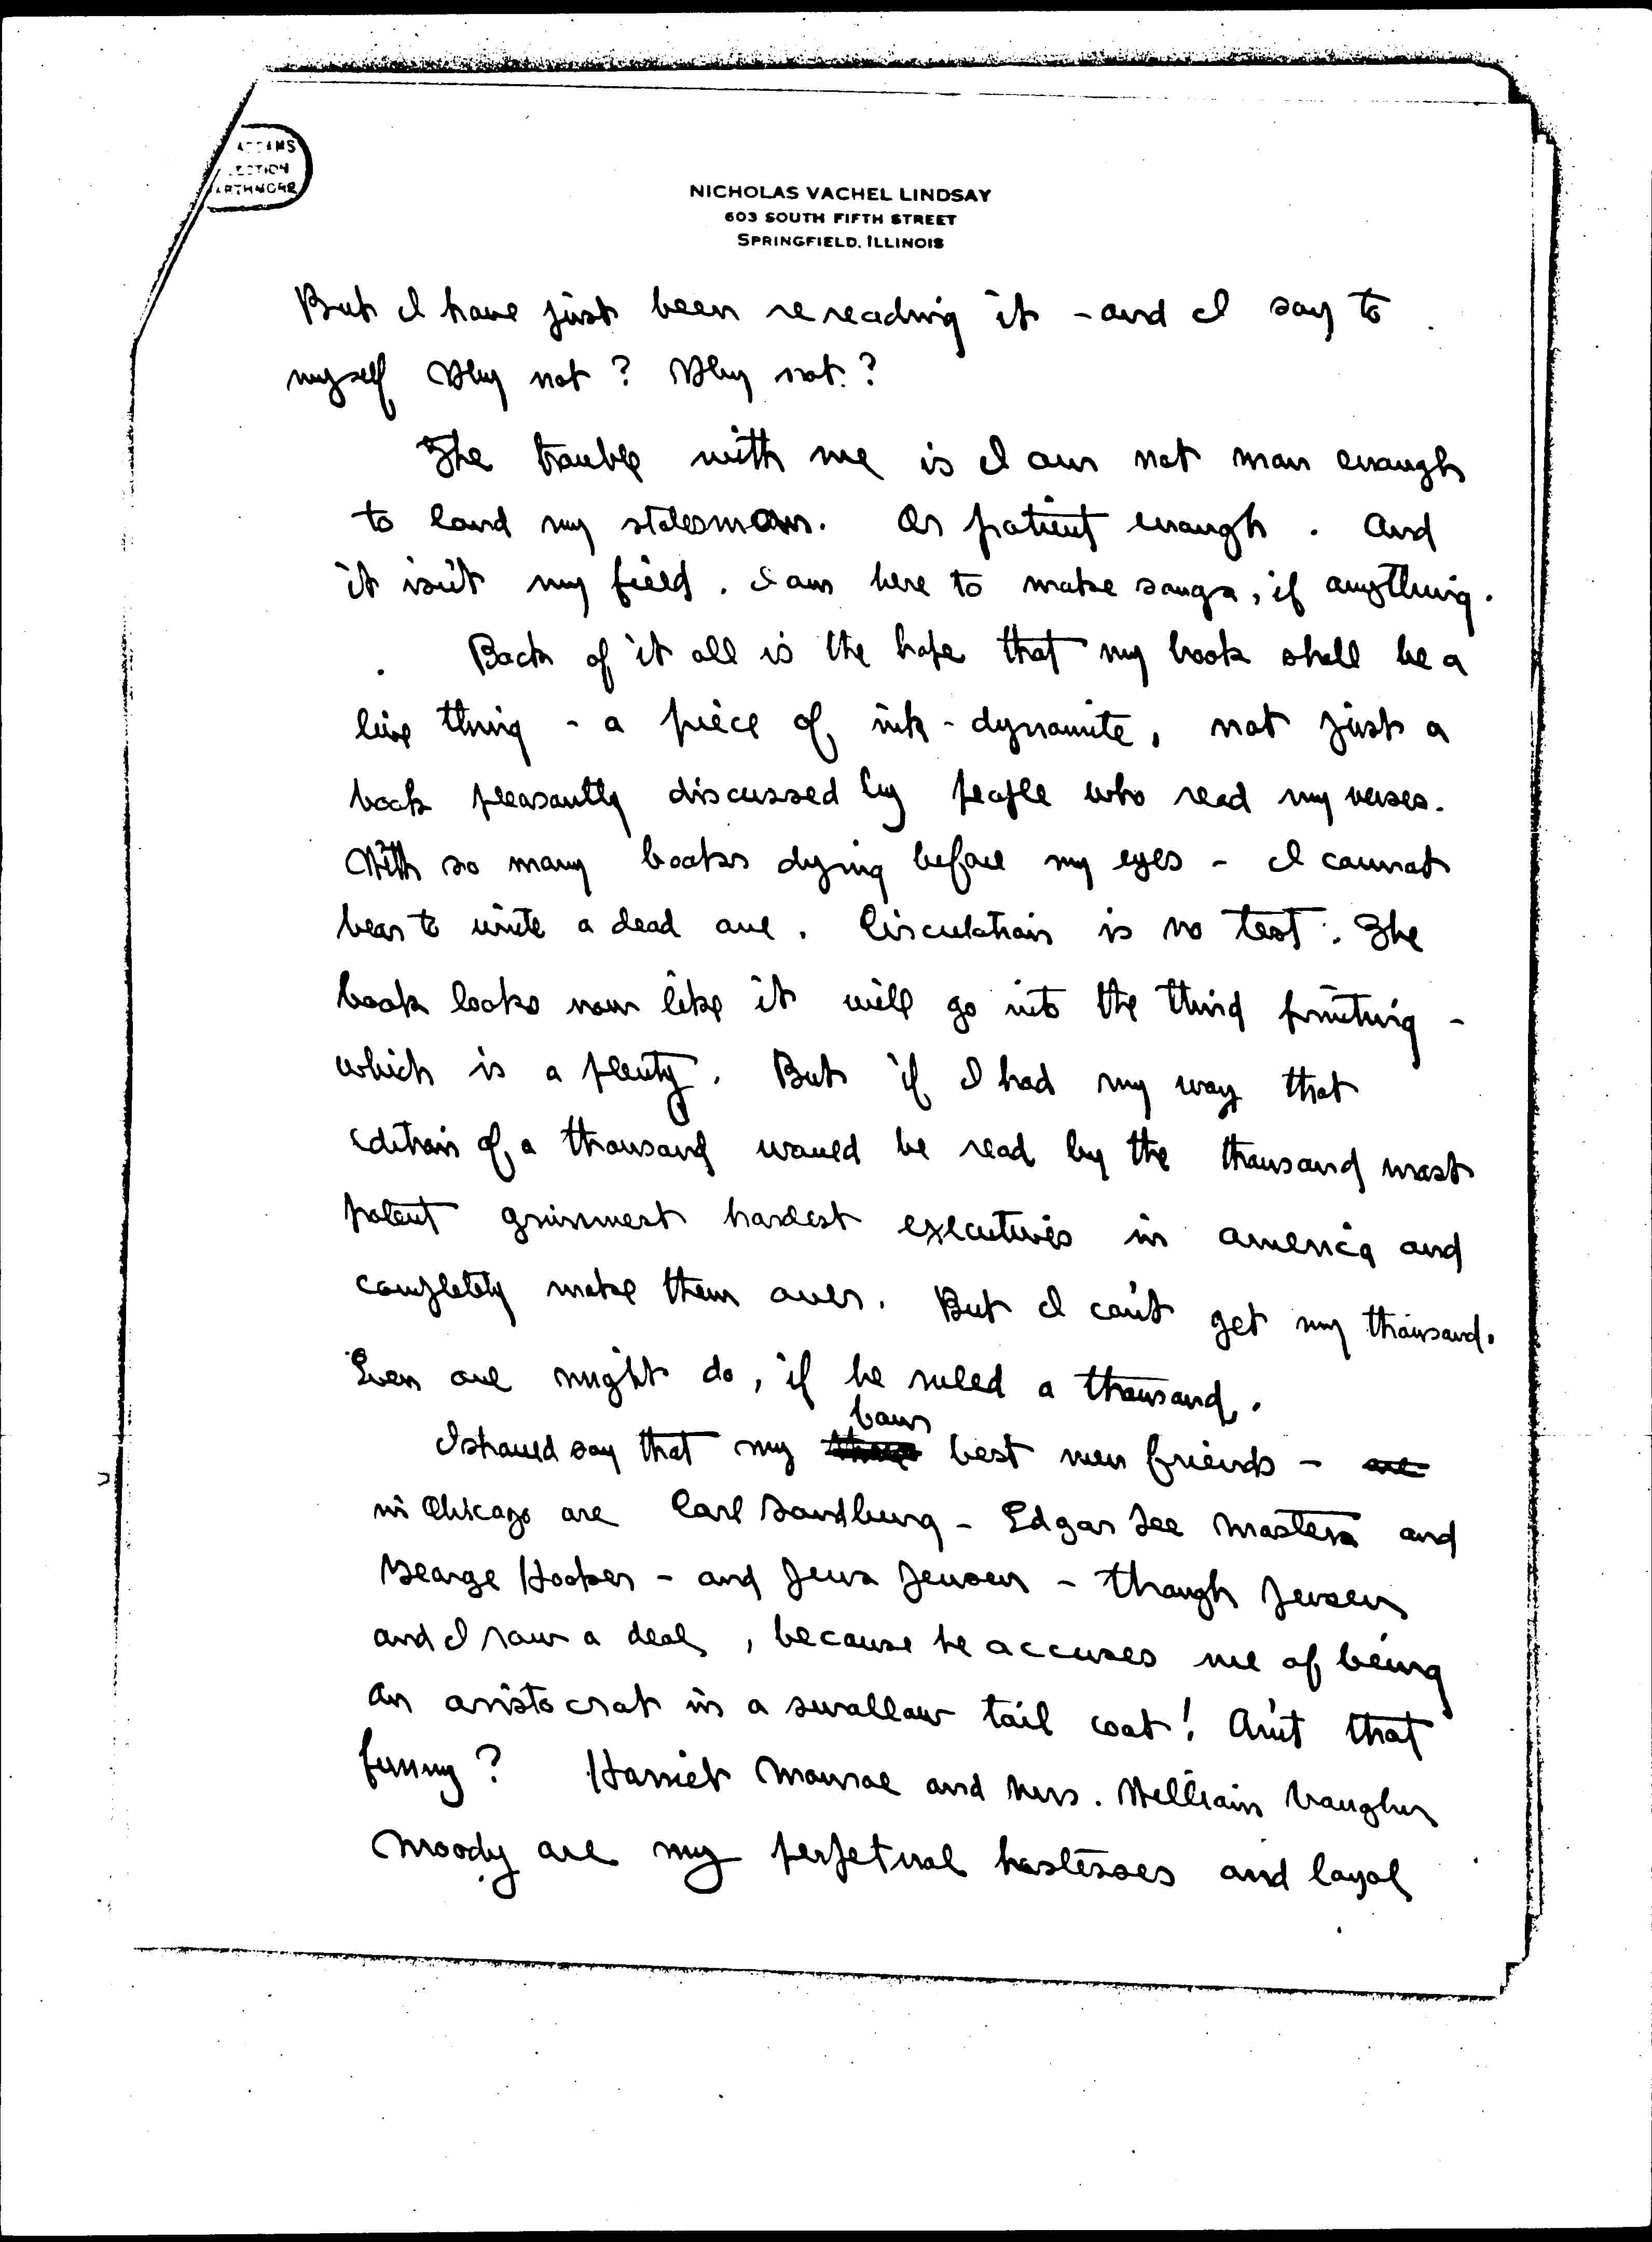 ADDAMS
LECTION
ARTHMORE
NICHOLAS VACHEL LINDSAY
603 SOUTH FIFTH STREET
SPRINGFIELD, ILLINOIS
But I have just been rereading it - and I say to
myself Why not? Why not?
The trouble with me is I am not man enough
to land my statesman. Or patient enough. And
it isn't my field. I am here to make songs, if anything.
Back of it all is the hope that my book shall be a
live thing - a piece of ink-dynamite, not just a
book pleasantly discussed by people who read my verses.
With so many books dying before my eyes - I cannot
bear to write a dead one. Circulation is no test. The
book looks now like it will go into the third printing -
which is a plenty. But if I had my way that
edition of a thousand would be read by the thousand most
potent grimmest hardest executives in America and
completely make them over. But I can't get my thousand.
Even one might do, if he ruled a thousand.
four
I should say that my best men friends - are
in Chicago are Carl Sandburg - Edgar Lee Masters and
George Hooker - and Jens Jensen - though Jensen
and I row a deal, because he accuses me of being
an aristocrat in a swallow tail coat! Ain't that
funny? Harriet Monroe and Mrs. William Vaughn
Moody are my perpetual hostesses and loyal